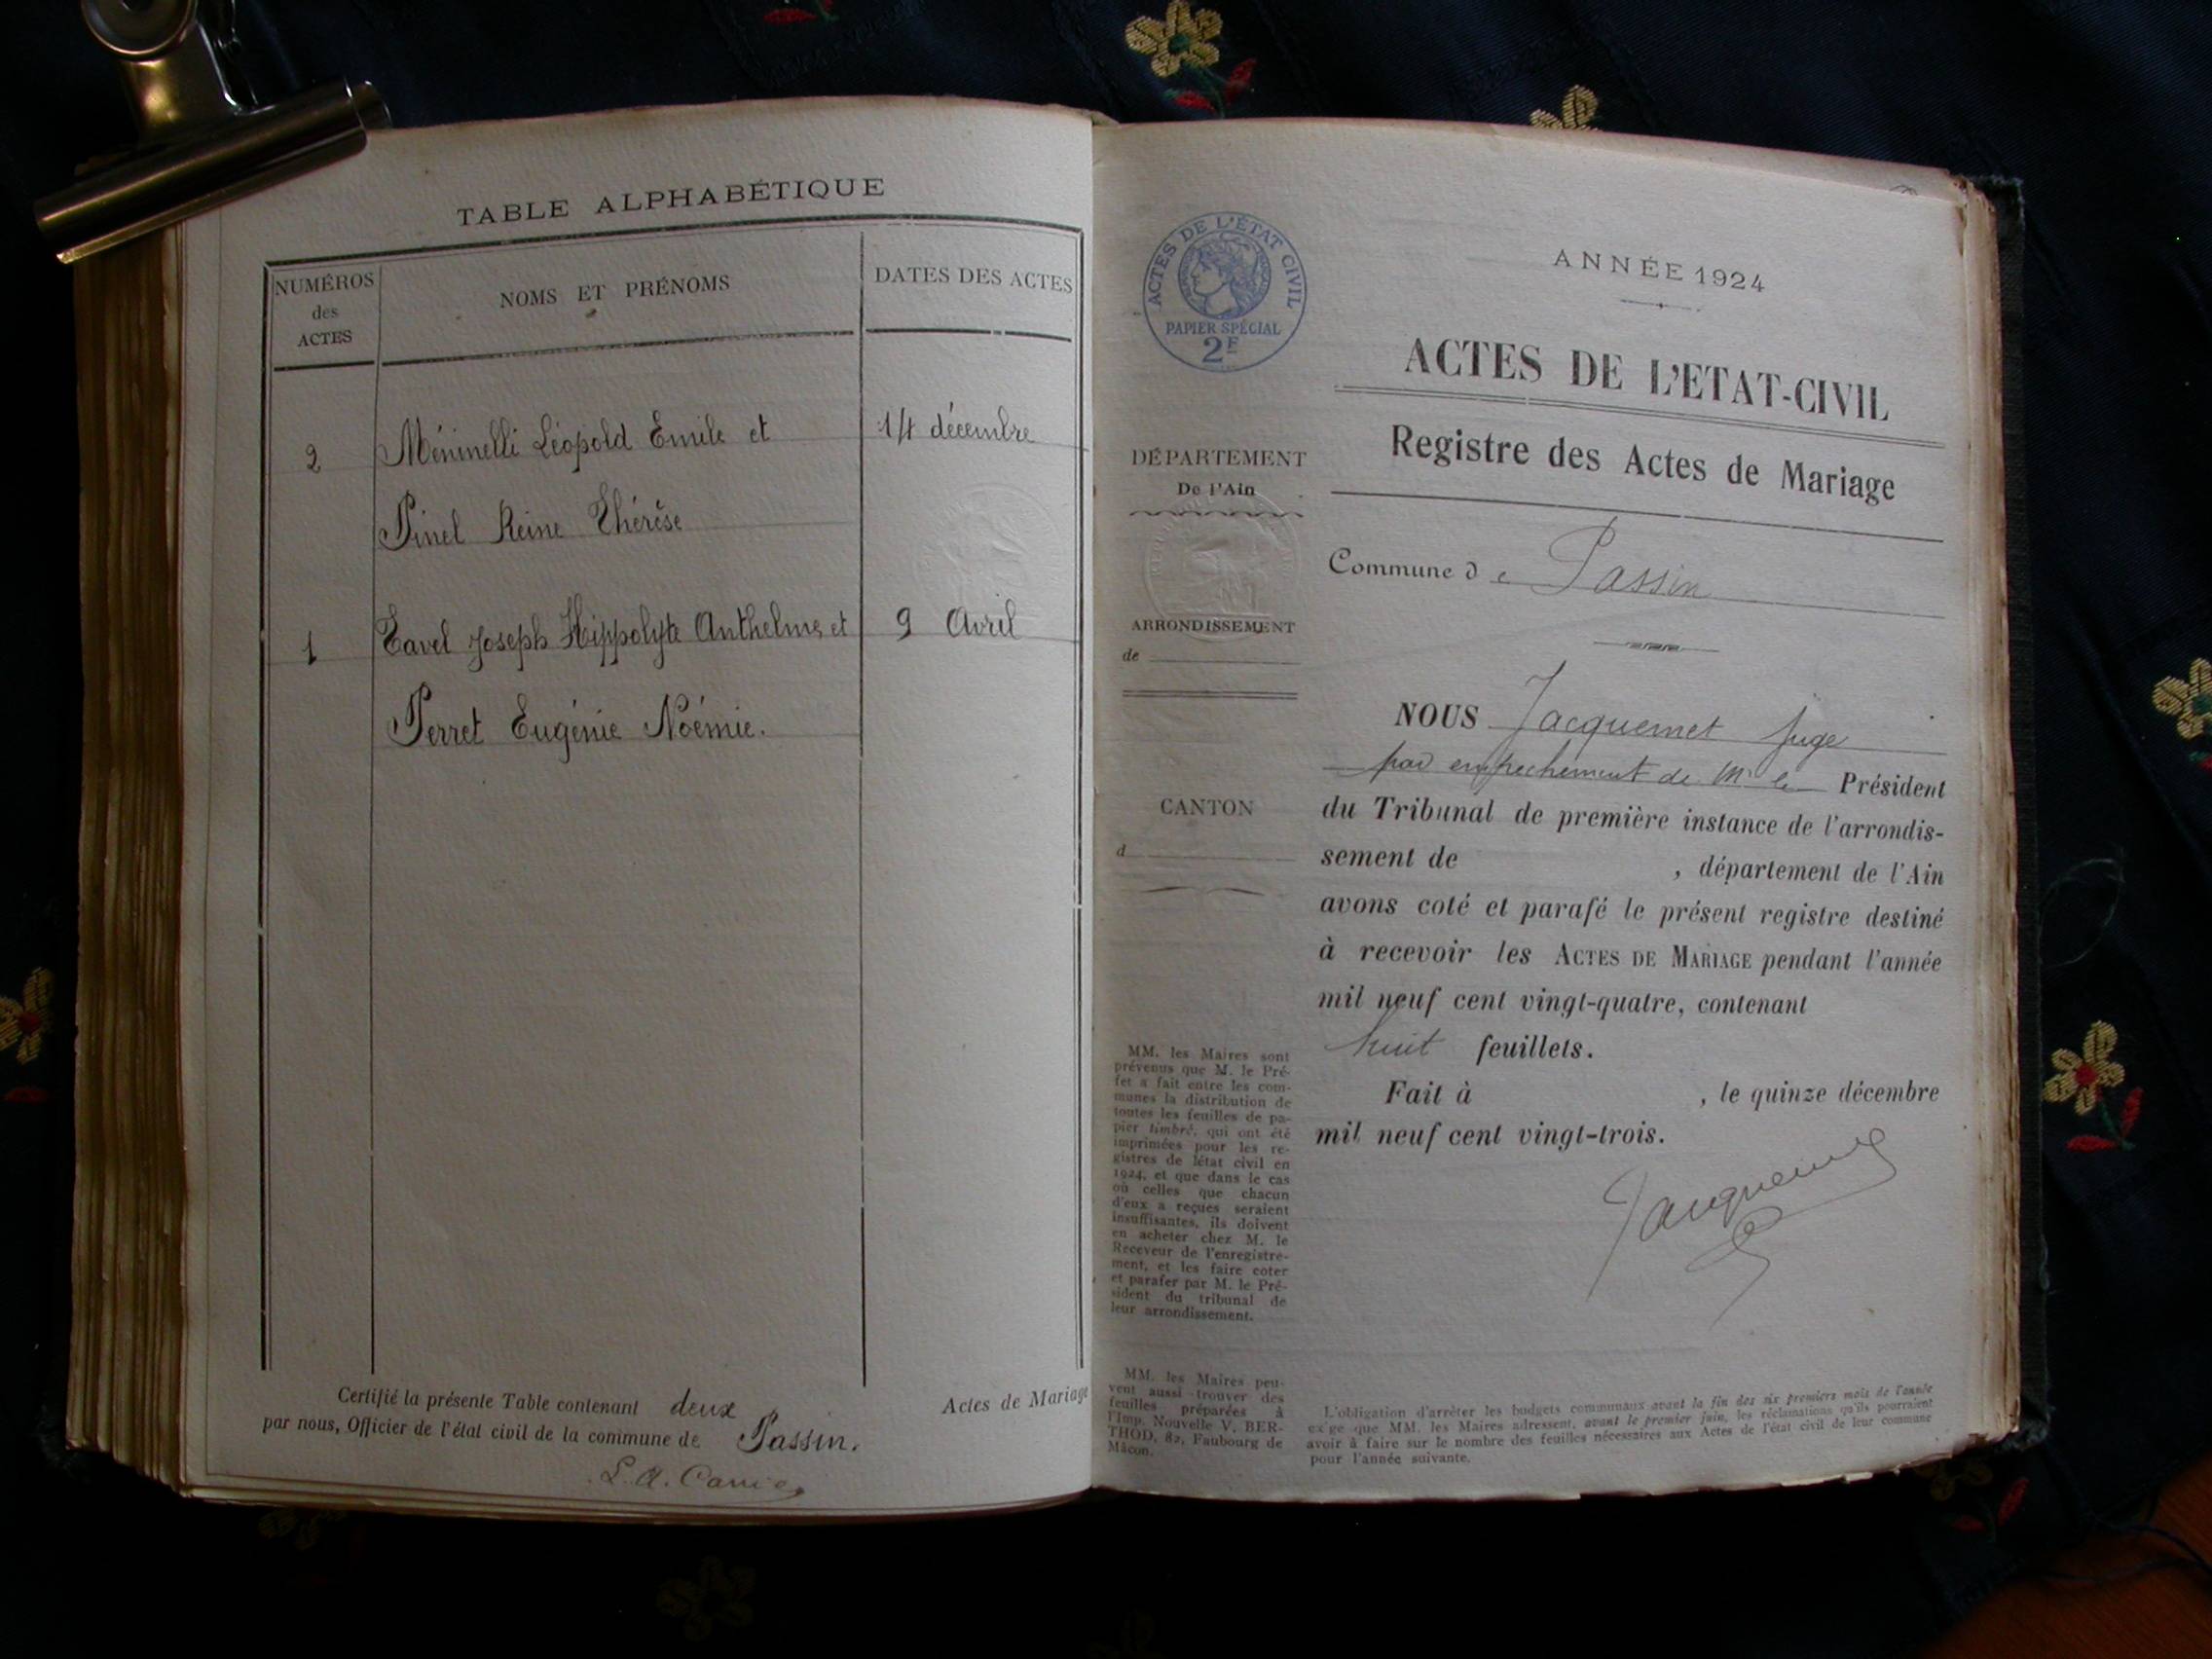 TABLE ALPHABÉTIQUE
NUMÉROS
des
ACTES
NOMS ET PRÉNOMS
DATES DES ACTES
2
Méninelli Léopold Emile et
14 décembre
Pinel Reine Thérèse
1
Tavel Joseph Hippolyte Anthelme et
9 Avril
Perret Eugénie Noémie.
Certifié la présente Table contenant deux Actes de Mariage
par nous, Officier de l'état civil de la commune de Passin.
ACTES DE L'ÉTAT CIVIL
PAPIER SPÉCIAL
2F
DÉPARTEMENT
De l'Ain
ARRONDISSEMENT
de
CANTON
d
MM. les Maires sont
prévenus que M. le Pré-
fet a fait entre les com-
munes la distribution de
toutes les feuilles de pa-
pier timbré, qui ont été
imprimées pour les re-
gistres de l'état civil en
1924, et que dans le cas
où celles que chacun
d'eux a reçues seraient
insuffisantes, ils doivent
en acheter chez M. le
Receveur de l'enregistre-
ment, et les faire coter
et parafer par M. le Pré-
sident du tribunal de
leur arrondissement.
MM. les Maires peu-
vent aussi trouver des
feuilles préparées à
l'Imp. Nouvelle V. BER-
THOD, 82, Faubourg de
Mâcon.
ANNÉE 1924
ACTES DE L'ETAT-CIVIL
Registre des Actes de Mariage
Commune de Passin
NOUS Jacquemet juge
par empechement de Mr le Président
du Tribunal de première instance de l'arrondis-
sement de , département de l'Ain
avons coté et parafé le présent registre destiné
à recevoir les ACTES DE MARIAGE pendant l'année
mil neuf cent vingt-quatre, contenant
huit feuillets.
Fait à , le quinze décembre
mil neuf cent vingt-trois.
L'obligation d'arrêter les budgets communaux avant la fin des six premiers mois de l'année
exige que MM. les Maires adressent, avant le premier juin, les réclamations qu'ils pourraient
avoir à faire sur le nombre des feuilles nécessaires aux Actes de l'état civil de leur commune
pour l'année suivante.